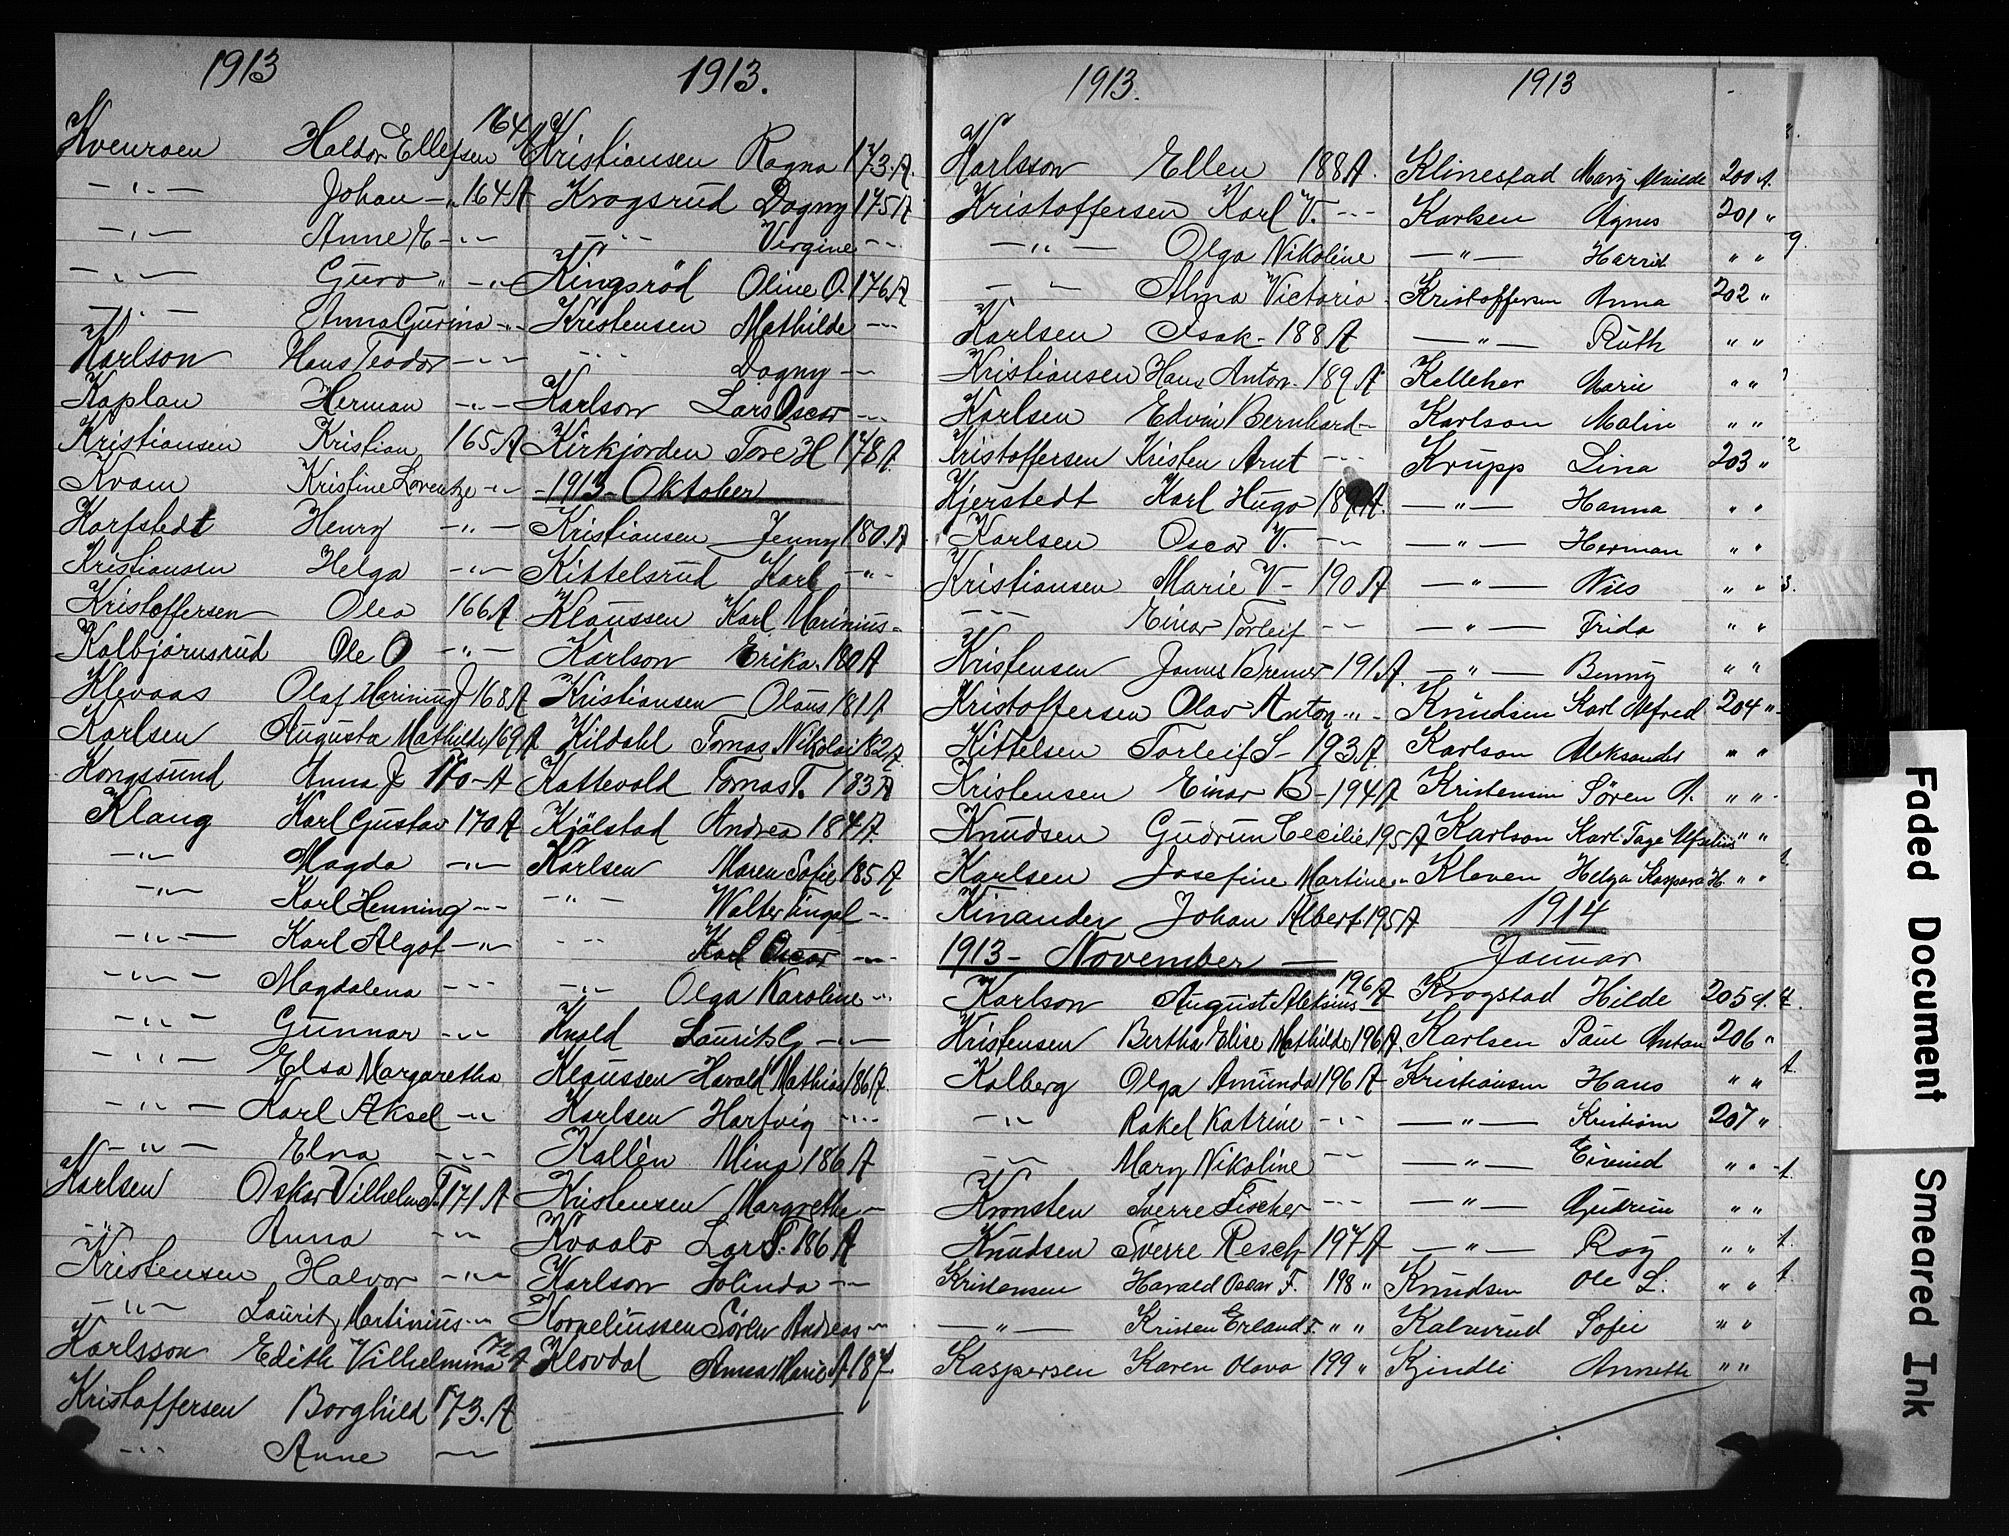 1913
Kvenroen Haldor Ellefsen 164 A
—"— Johan —"— 164 A
—"— Anne E —"—
—"— Guro " —"—
—"— Anna Gurina —"—
Karlson Hans Teodor —"—
Kaplan Herman —"—
Kristiansen Kristian 165 A
Kvam Kristine Lorentze —"—
Karfstedt Henry —"—
Kristiansen Helga —"—
Kristoffersen Olea 166 A
Kalbjørnsrud Ole O —"—
Klevaas Olaf Marinius J 168 A
Karlsen Augusta Mathilde 169 A
Kongssund Anna J 170 - A
Klang Karl Gustav 170 A
—"— Magda —"—
—"— Karl Henning —"—
—"— Karl Algot —"—
—"— Magdalena —"—
—"— Gunnar —"—
—"— Elsa Margaretha
—"— Karl Aksel —"—
—"— Elna —"—
Karlsen Oskar Vilhelm T. 171 A
—"— Anna —"—
Kristensen Halvor —"—
—"— Laurits Martinius —"—
Karlsson Edith Vilhelmina 172 A
Kristoffersen Borghild 173. A
—"— Anne —"—
1913.
Kristiansen Ragna 173. A.
Krogsrud Dagny 175 A
—"— Virgine —"—
Kingsrød Oline O. 176 A
Kristensen Mathilde —"—
—"— Dagny —"—
Karlson Lars Oscar —"—
Kirkjorden Tore H 178 A.
- 1913 - Oktober
Kristiansen Jenny 180. A
Kittelsrud Karl —"—
Klaussen Karl Marinius —"—
Karlson Erika. 180 A
Kristiansen Olaus 181 A
Kildahl Tomas Nikolai 182 A.
Kattevold Tomas T. 183 A
Kjølstad Andrea 184 A.
Karlsen Maren Sofie 185 A
—"— Walter Engel —"—
—"— Karl Oscar —"—
—"— Olga Karoline —"—
Knold Laurits G —"—
Klaussen Harald Mathias 186 A.
Karlsen Hartvig —"—
Kallèn Mina 186 A
Kristensen Margrethe —"—
Kvaalo Lars T. 186 A
Karlson Jolinda —"—
Korneliussen Søren Andreas —"—
Klovdal Anna Marie A 187
1913.
Karlsson Ellen 188 A.
Kristoffersen Karl V. —"—
—"— Olga Nikoline
—"— Alma Victoria
Karlsen Isak - 188 A
Kristiansen Hans Anton. 189 A
Karlsen Edvin Bernhard —
Kristoffersen Kristen Arnt —"—
Kjerstedt Karl Hugo 189 A.
Karlsen Oscar V. —"—
Kristiansen Marie V - 190 A
—"— Einar Torleif —"—
Kristensen James Bremer 191 A.
Kristoffersen Olav Anton —"—
Kittelsen Torleif S - 193 A.
Kristensen Einar B - 194 A
Knudsen Gudrun Cecilie 195 A
Karlsen Josefine Martine —"—
Kinander Johan Albert 195 A
1913 - November —
Karlson August Aleksius 196 A
Kristensen Bertha Elise Mathilde 196 A
Kalberg Olga Amunda 196 A
—"— Rakel Katrine —"—
—"— Mary Nikoline —"—
Kronsten Sverre Fischer —"—
Knudsen Sverre Resch 197 A
Kristensen Harald Oscar F. 198 "
—"— Kristen Erland S. " "
Kaspersen Karen Olava 199 "
1913
Klinestad Mary Alvilde 200 A.
Karlsen Agnes 201 "
—"— Harrid " "
Kristoffersen Anna 202 "
—"— Ruth " "
Kelleher Marie " "
Karlson Malin " "
Krupp Lina 203 "
—"— Hanna " "
—"— Herman " "
—"— Nils " "
—"— Frida " "
—"— Benny " "
Knudsen Karl Alfred 204 "
Karlson Aleksander " "
Kristensen Søren A. " "
Karlson Karl Tage " "
Kleven Helga Kaspara H. " "
1914
Januar
Krogstad Hilde 205 A.
Karlsen Paul Anton 206 "
Kristiansen Hans " "
—"— Kristian 207 "
—"— Eivind " "
—"— Gudrun " "
—"— Roy " "
Knudsen Ole L. " "
Kalnerud Sofie " "
Kjindli Anneth " "
Faded Document Smeared Ink